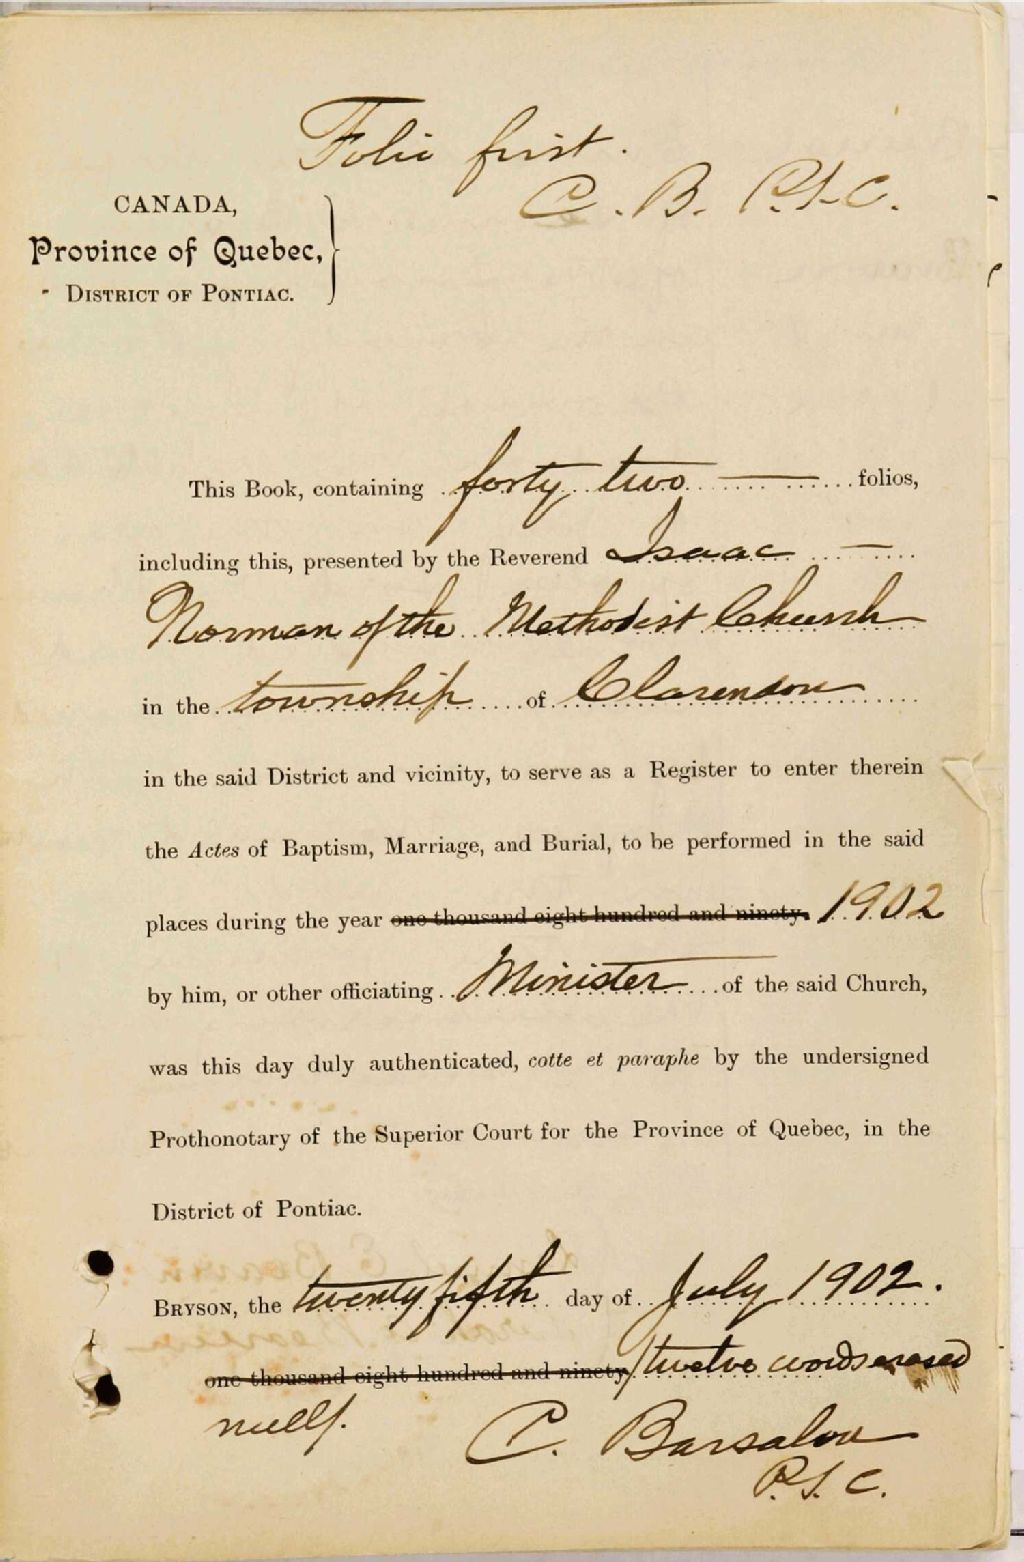 Folio first.
C. B. P.S.C.
CANADA,
Province of Quebec,
DISTRICT OF PONTIAC.
This Book, containing forty two folios,
including this, presented by the Reverend Isaac
Norman of the Methodist Church
in the township of Clarendon
in the said District and vicinity, to serve as a Register to enter therein
the Actes of Baptism, Marriage, and Burial, to be performed in the said
places during the year one thousand eight hundred and ninety. 1902
by him, or other officiating Minister of the said Church,
was this day duly authenticated, cotte et paraphe by the undersigned
Prothonotary of the Superior Court for the Province of Quebec, in the
District of Pontiac.
BRYSON, the twenty fifth day of July 1902.
one thousand eight hundred and ninety / twelve words erased
null.
C. Barsalou
P.S.C.